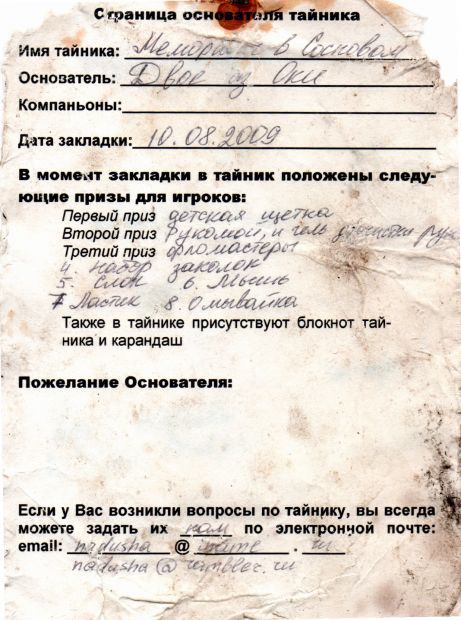 Страница основателя тайника
Имя тайника: Мемориал в Сосновом
Основатель: Двое из Оки
Компаньоны:
Дата закладки: 10.08.2009
В момент закладки в тайник положены следу-
ющие призы для игроков:
Первый приз детская щетка
Второй приз Рукомой, и гель рук
Третий приз фломастеры
4. набор заколок
5. Слон 6. Мышь
7 Ластик 8. Омывайка
Также в тайнике присутствуют блокнот тай-
ника и карандаш
Пожелание Основателя:
Если у Вас возникли вопросы по тайнику, вы всегда
можете задать их нам по электронной почте:
email: nadusha @ . ru
nadusha@rambler.ru